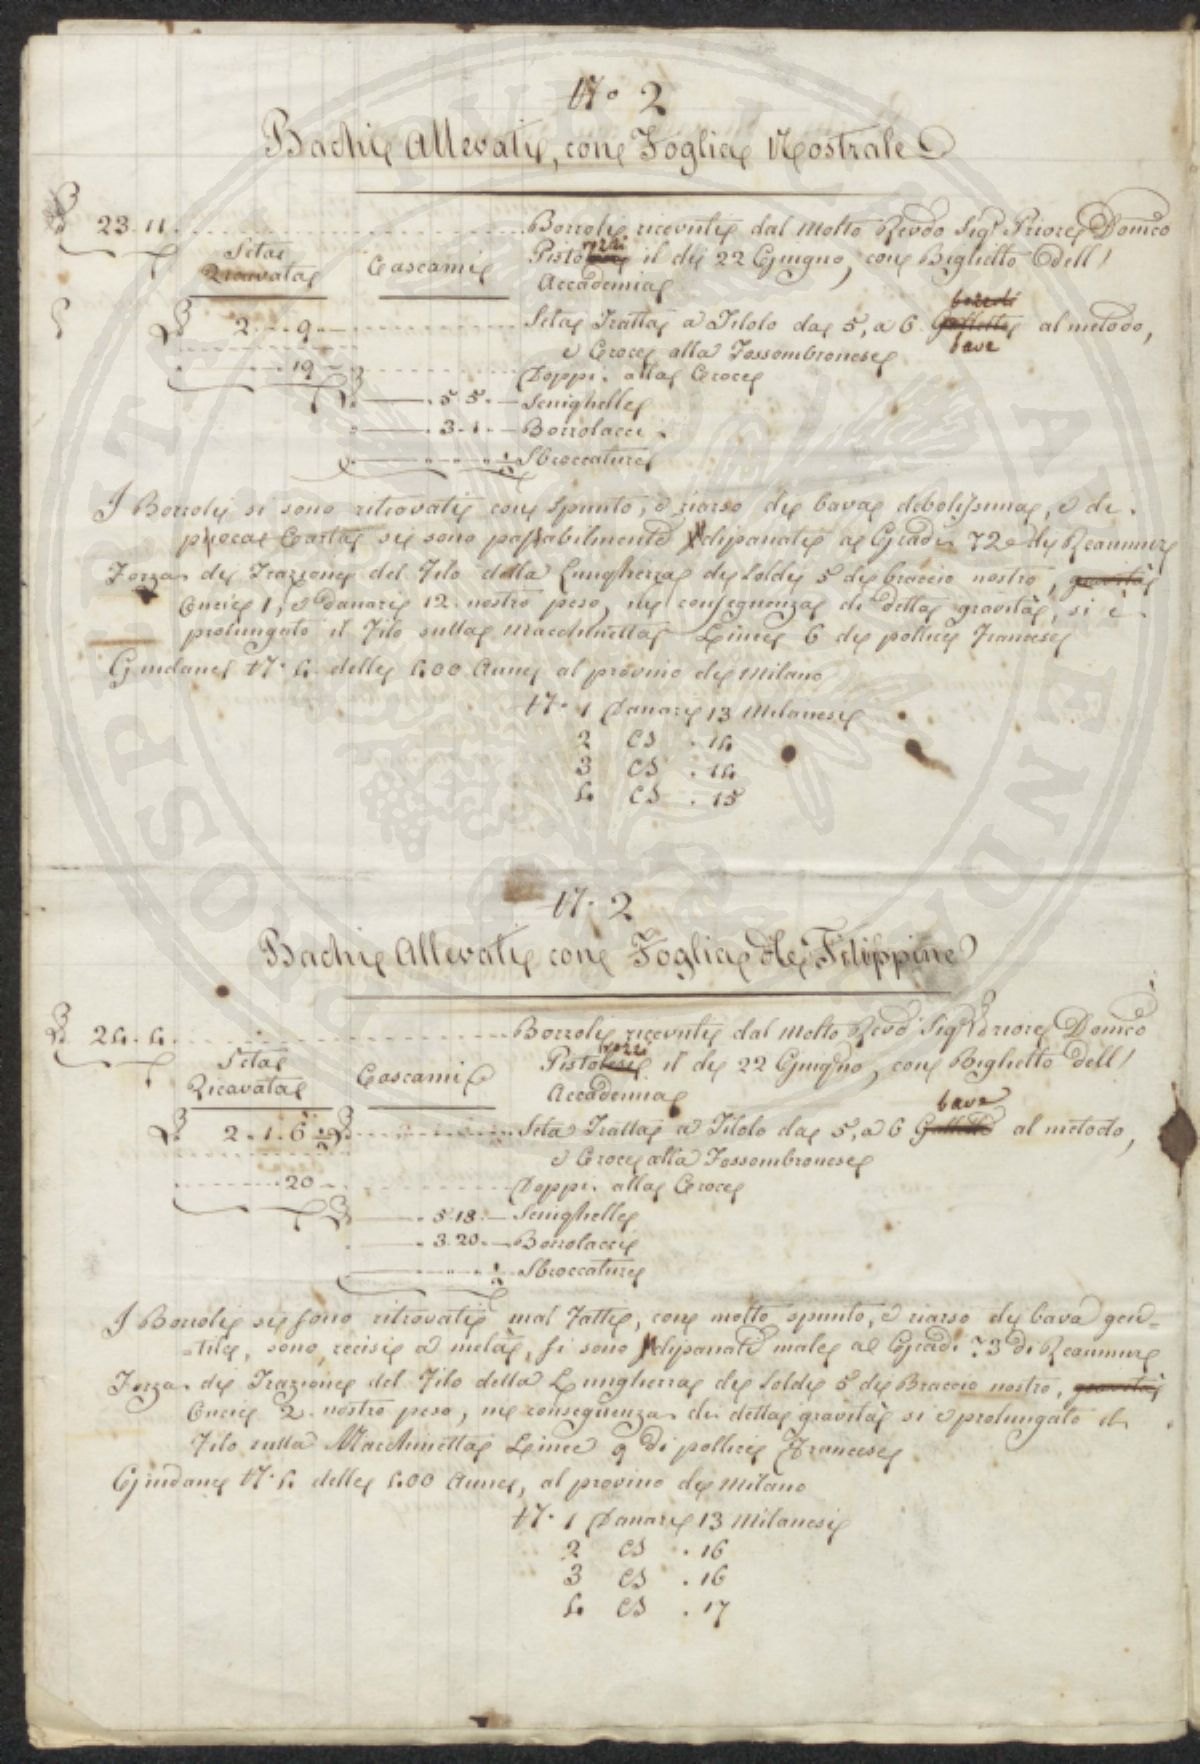 N.º 2
Bachi Allevati, con Foglia Nostrale
23. 11. Bozzoli ricevuti dal Molto Revdo Sigr Priore Domco
Seta Ricavata Cascami Pistolozzi il dì 22 Giugno, con Biglietto dell'
Accademia
bozzoli
2. 9. Seta Tratta a Titolo da 5, a 6 Gallette al metodo,
bave
e Croce alla Fossombronese
19 Doppi. alla Croce
5. 5. Terughelle
3. 1. Bozzolacci
½ Sbroccature
I Bozzoli si sono ritrovati con spunto, e riarso di bava debolissima, e di
poca Carta si sono passabilmente dipanati ai Gradi 72 di Reaumur
Forza di Trazione del Filo della Lungherza di Soldi 5 di braccio nostro, gravità
Oncie 1, e danari 12 nostro peso, in conseguenza di detta gravità, si è
prolungato il Filo sulla Macchinetta Linee 6 di pollice Francese
Gindane N.º 4 delle 400 Aune al provino di Milano
N.º 1 Danari 13 Milanesi
2 CS . 14
3 CS . 14
4 CS . 15
N.º 2
Bachi Allevati con Foglia de Filippine
24. 4. Bozzoli ricevuti dal Molto Revdo Sigr Priore Domco
Seta Ricavata Cascami Pistolozzi il dì 22 Giugno, con Biglietto dell'
Accademia
bave
2. 1. 6 ½ Seta Tratta a Titolo da 5, a 6 Gallette al metodo,
e Croce alla Fossombronese
20 Doppi. alla Croce
5. 18. Terughelle
3. 20. Bozzolacci
½ Sbroccature
I Bozzoli si sono ritrovati mal Fatti, con molto spunto, e riarso di bava gen=
=tile, sono recisi a metà, si sono dipanati male ai Gradi 73 di Reaumur
Forza di Trazione del Filo della Lungherza di Soldi 5 di Braccio nostro, gravità
Oncie 2 nostro peso, in conseguenza di detta gravità si è prolungato il
Filo sulla Macchinetta Linee 9 di pollice Francese
Gindane N.º 4 delle 400 Aune, al provino di Milano
N.º 1 Danari 13 Milanesi
2 CS . 16
3 CS . 16
4 CS . 17